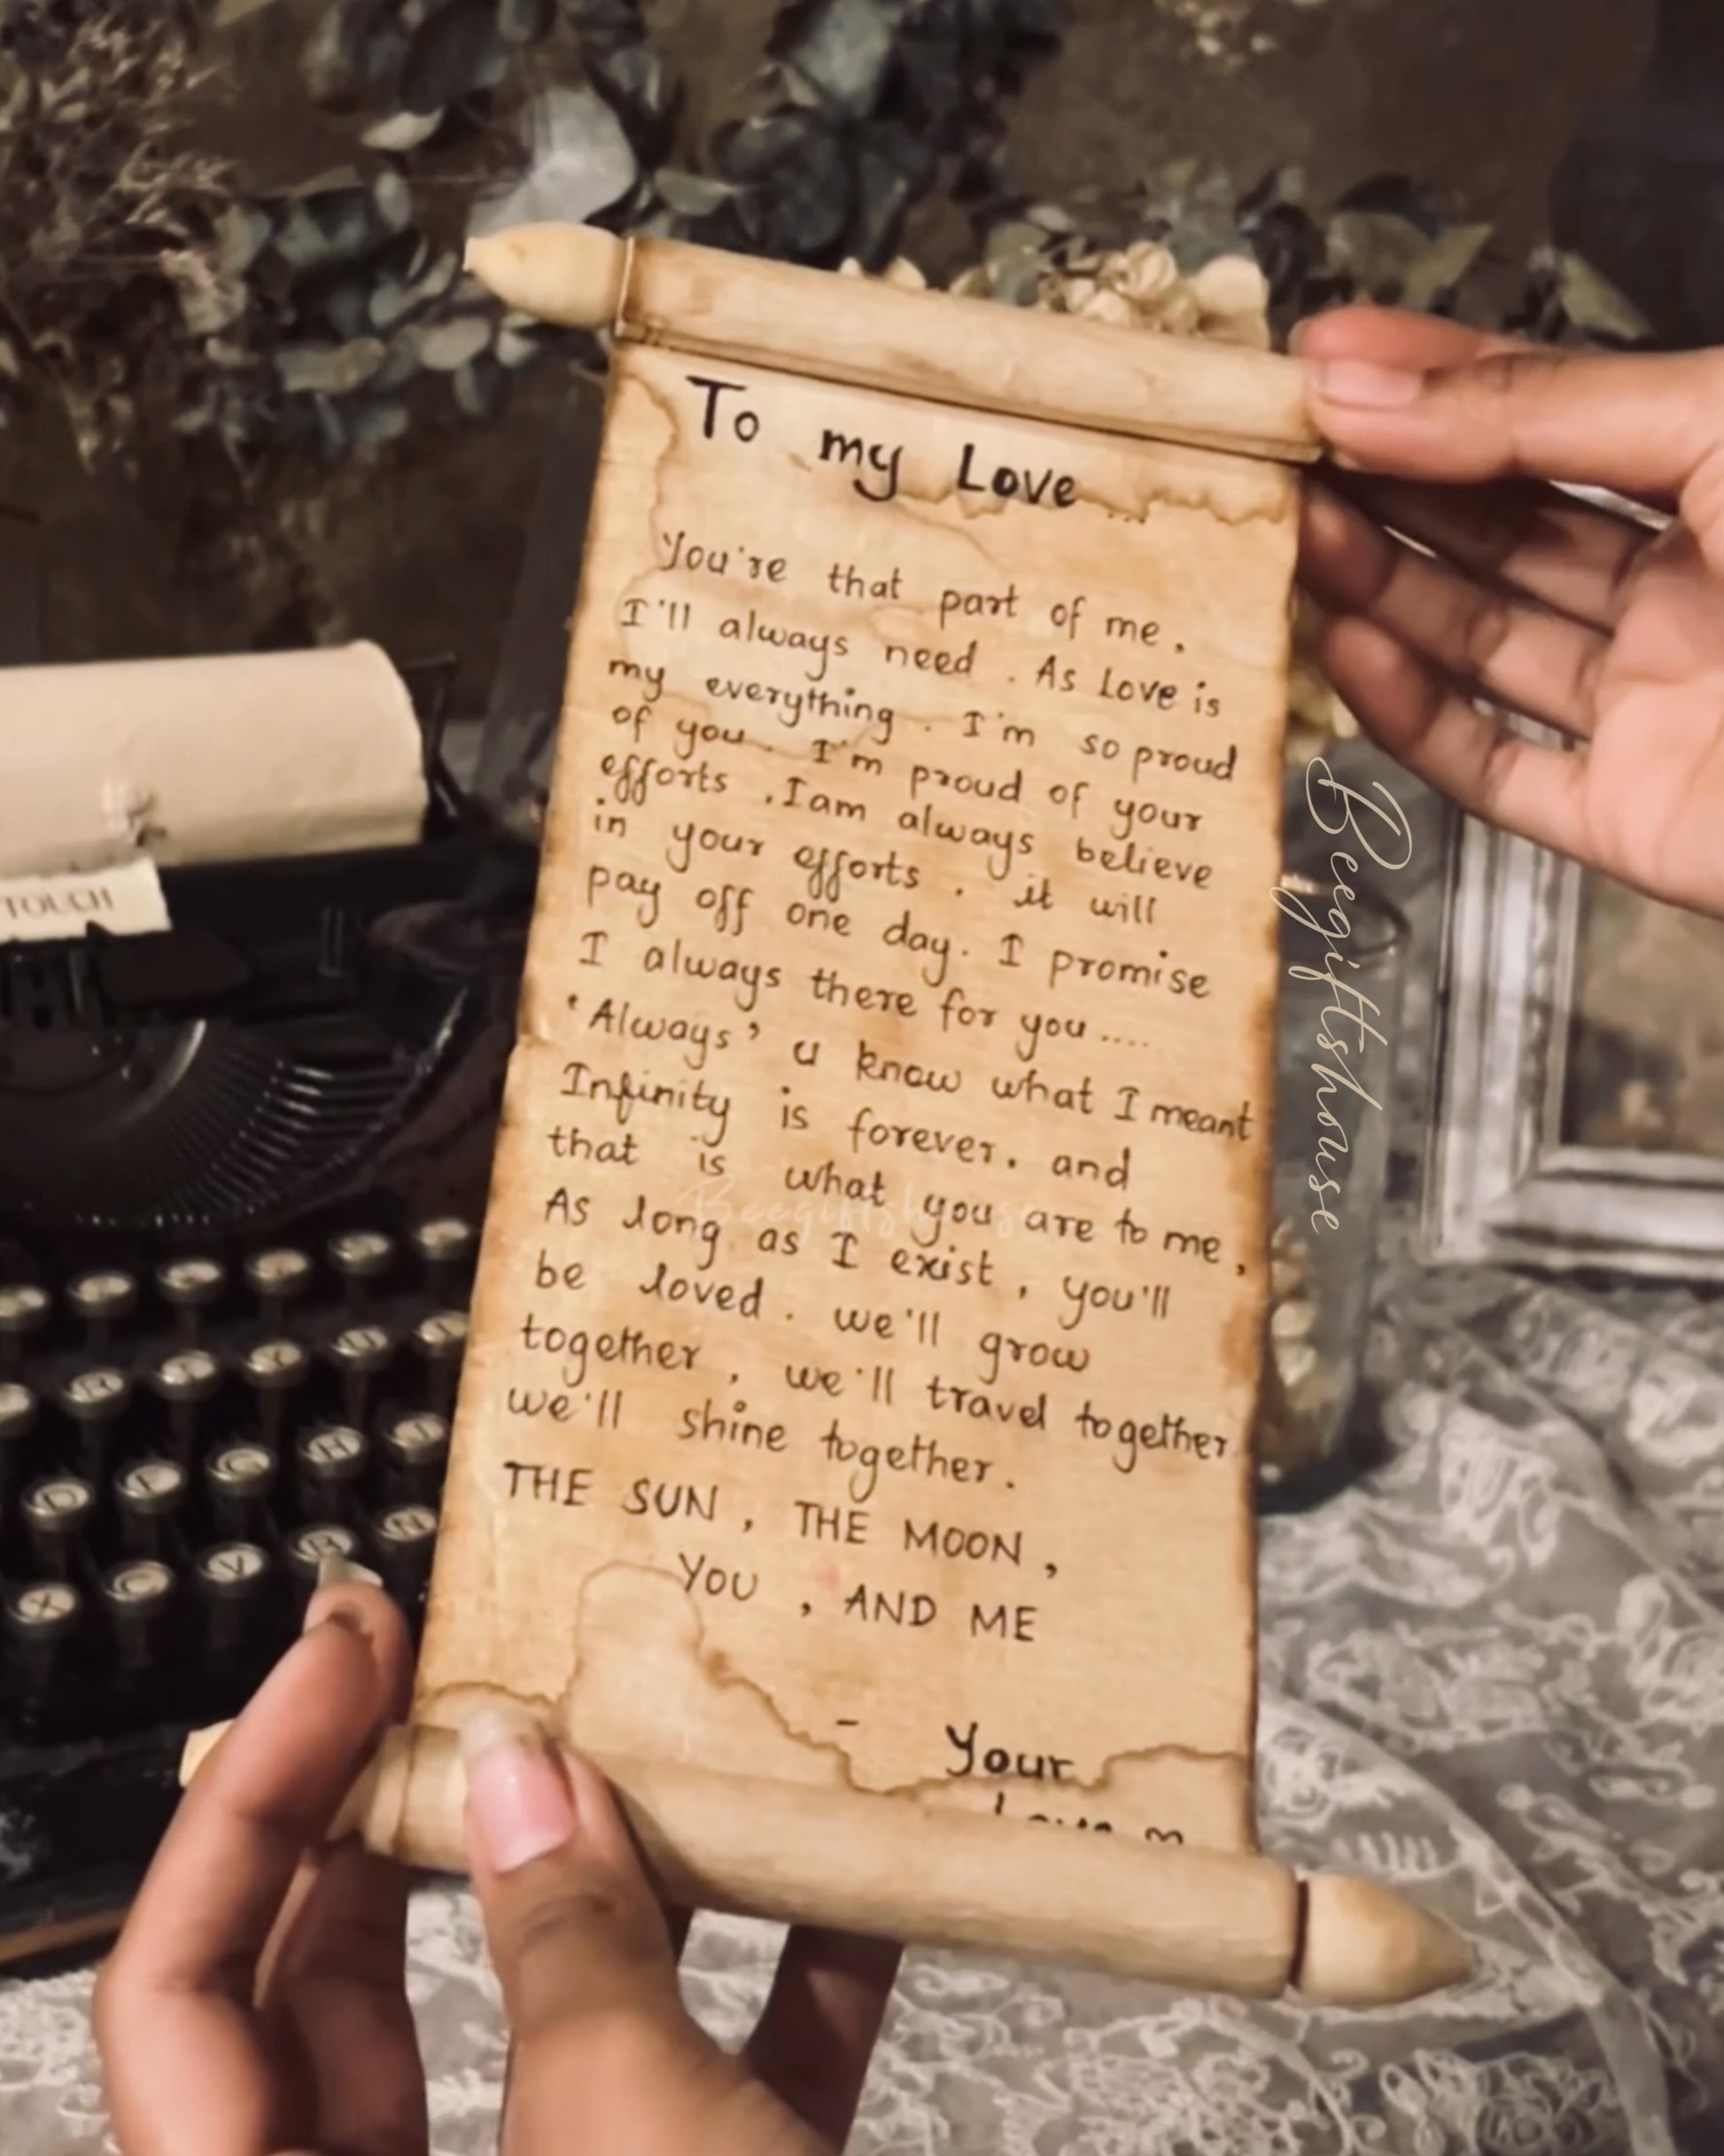 To my Love ...
You're that part of me,
I'll always need. As Love is
my everything. I'm so proud
of you. I'm proud of your
efforts. I am always believe
in your efforts. it will
pay off one day. I promise
I always there for you....
'Always' u know what I meant
Infinity is forever, and
that is what you are to me,
As long as I exist, you'll
be loved. we'll grow
together, we'll travel together
we'll shine together.
THE SUN, THE MOON,
YOU, AND ME
- Your
TOUCH
Beegiftshouse
Beegiftshouse
D F G H J
X C V B N